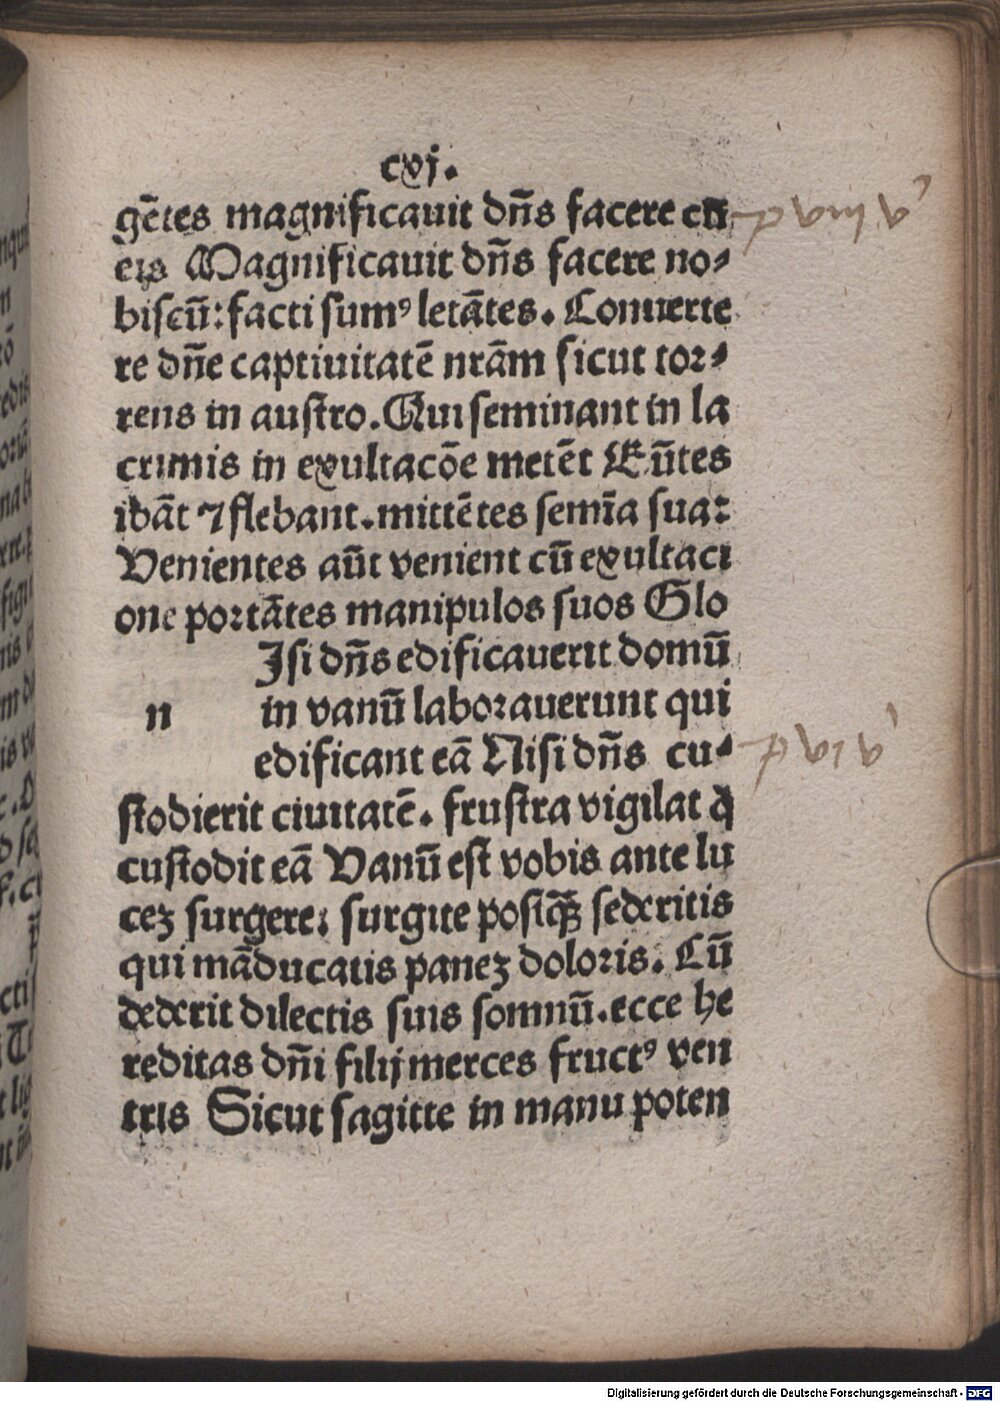 cxj.
gẽtes magnificauit dñs facere cũ
eis Magnificauit dñs facere no⸗
biscũ: facti sumꝰ letãtes. Conuerte
re dñe captiuitatẽ nrãm sicut tor⸗
rens in austro. Qui seminant in la
crimis in exultacõe metẽt Eũtes
ibãt ⁊ flebant. mittẽtes semĩa sua:
Venientes aũt venient cũ exultaci
one portãtes manipulos suos Glo
Isi dñs edificauerit domũ
n in vanũ laborauerunt qui
edificant eã Nisi dñs cu⸗
stodierit ciuitatẽ. frustra vigilat q̃
custodit eã Vanũ est vobis ante lu
cez surgere: surgite posiꝗ̃ sederitis
qui mãducatis panez doloris. Cũ
dederit dilectis suis somnũ. ecce he
reditas dñi filij merces fructꝰ ven
tris Sicut sagitte in manu poten
Digitalisierung gefördert durch die Deutsche Forschungsgemeinschaft - DFG